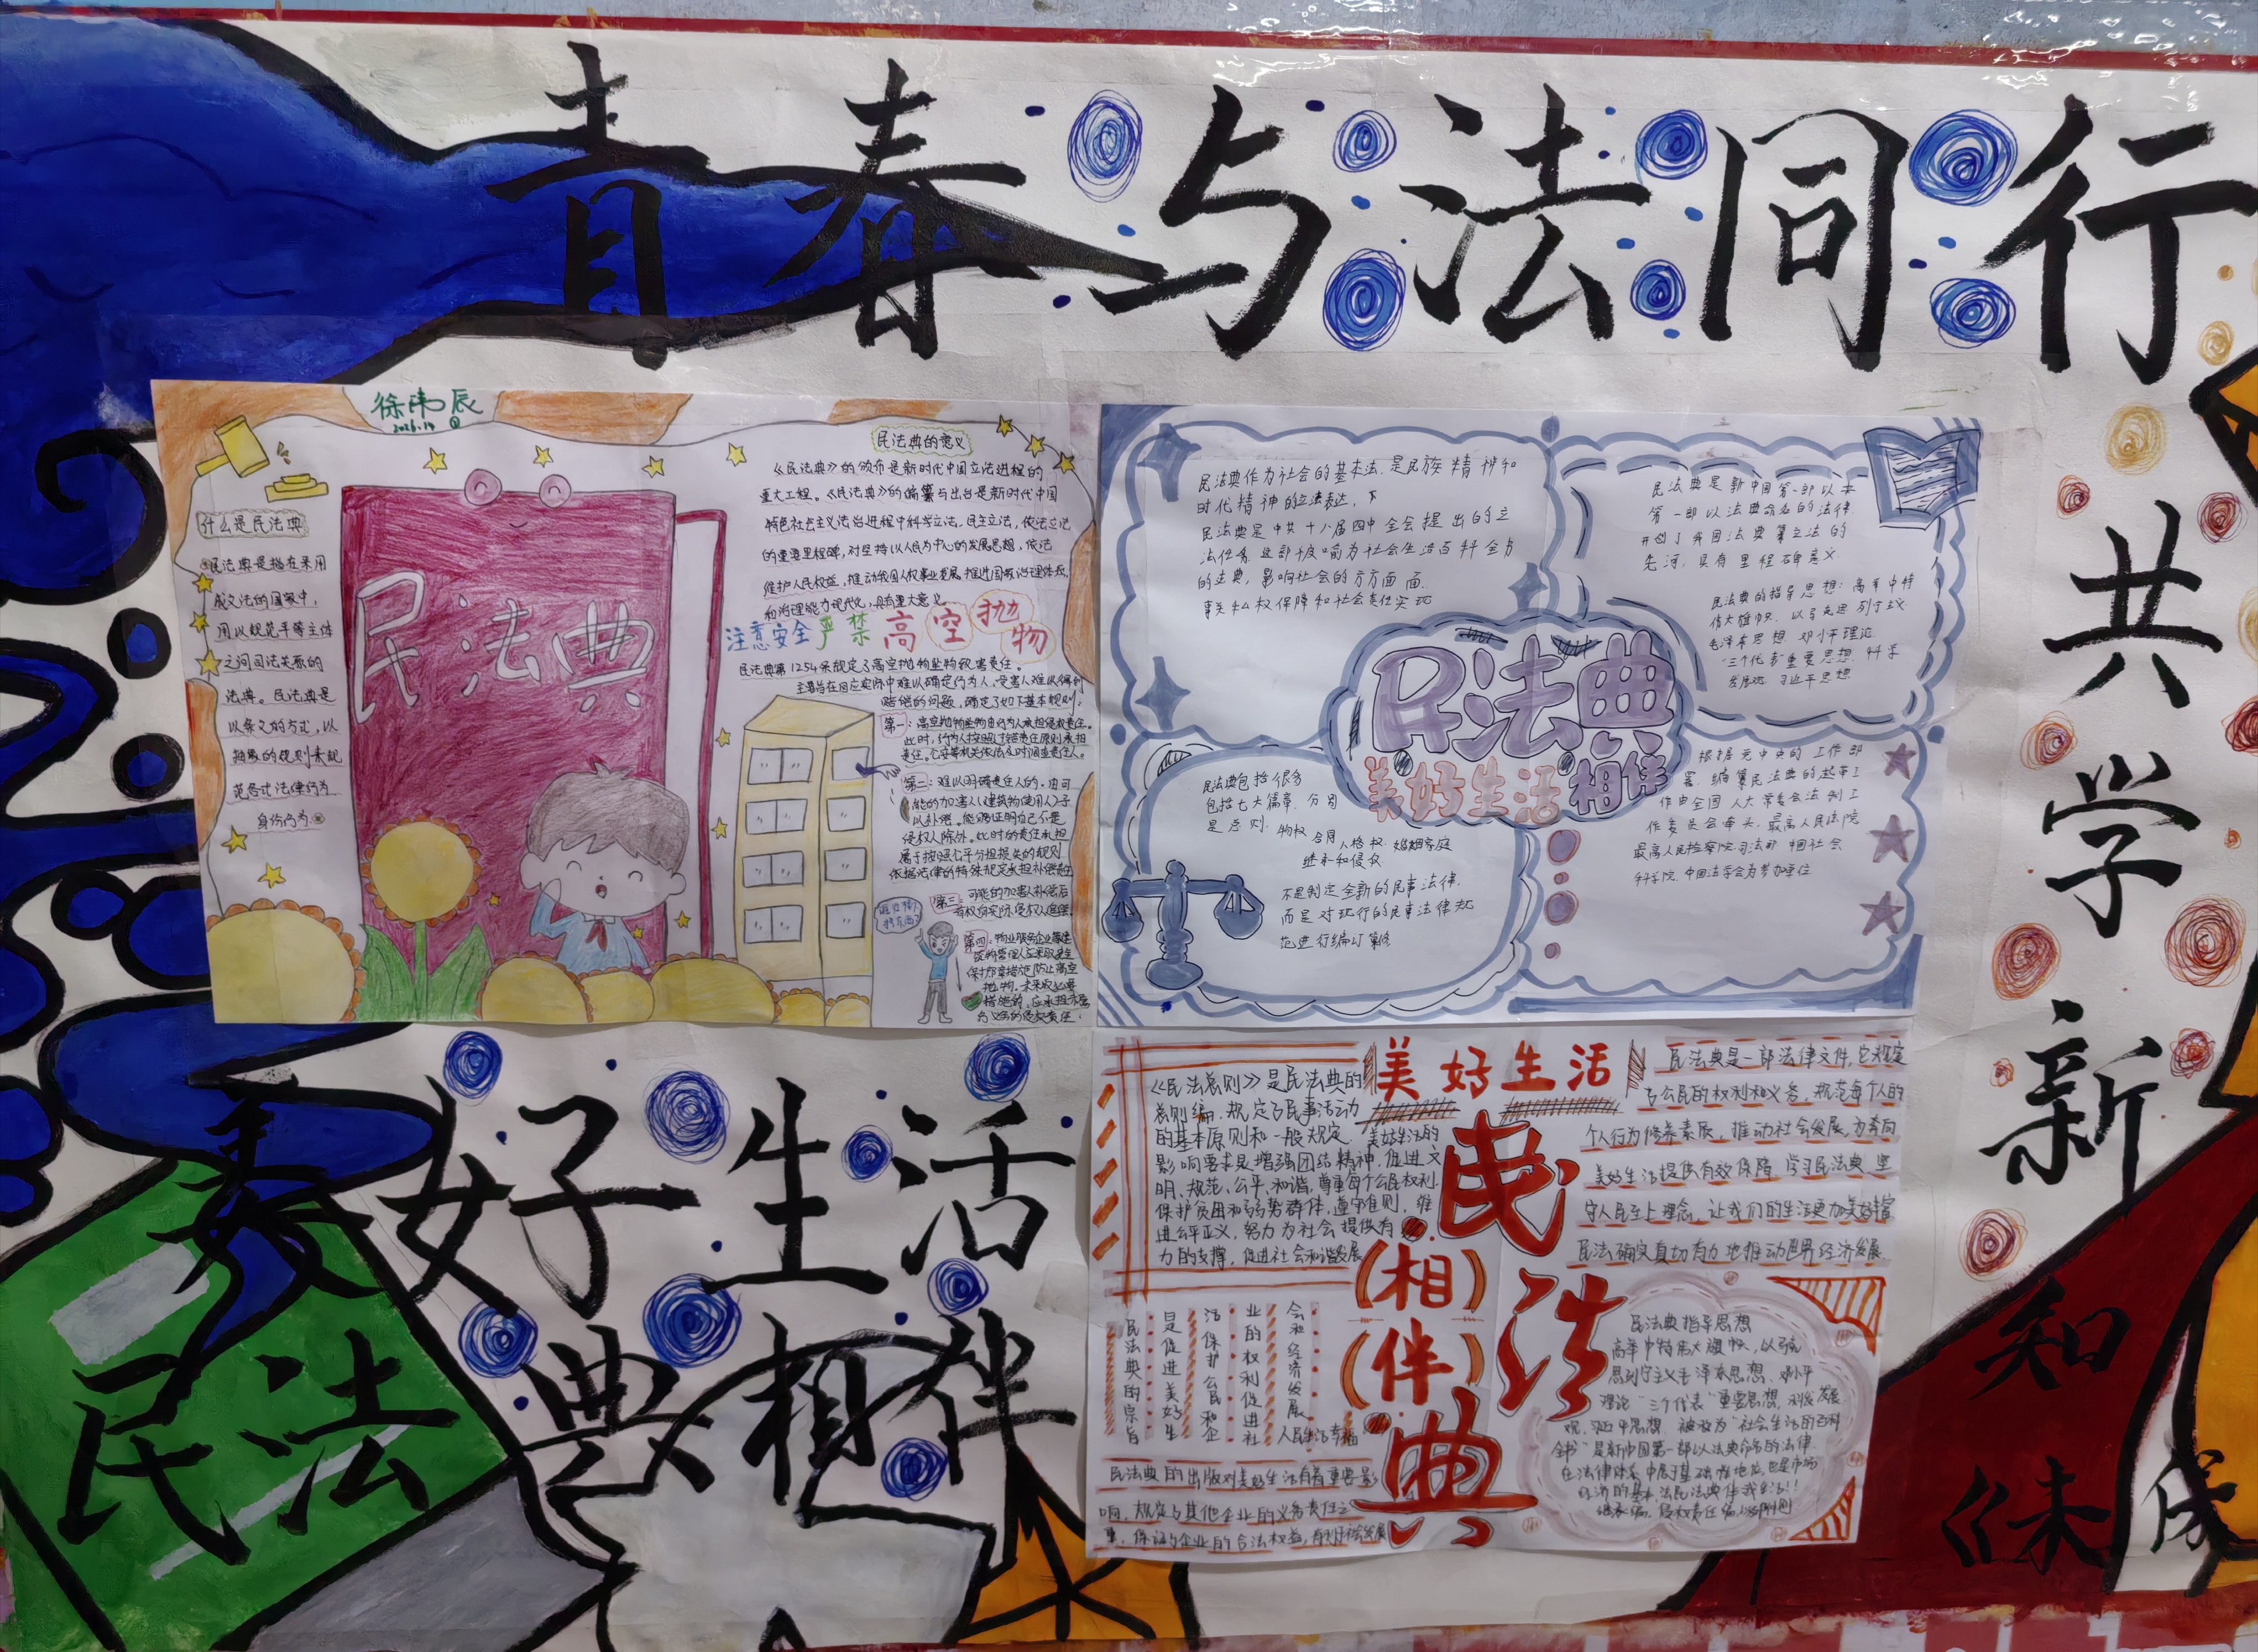 青春与法同行
共学新知
《未成
美好生活
民法典相伴
徐
民法典
什么是民法典
民法典是指在采用
成文法的国家中，
用以规范平等主体
之间司法关系的
法典。民法典是
以条文的方式，以
抽象的规则来规
范各式法律行为
身份行为。
民法典的意义
《民法典》的颁布是新时代中国立法进程的
重大工程。《民法典》的编纂与出台是新时代中国
特色社会主义法治进程中科学立法、民主立法，依法立法
的重要里程碑，对坚持以人民为中心的发展思想，依法
维护人民权益，推动我国人权事业发展，推进国家治理体系
和治理能力现代化，具有重大意义
注意安全严禁高空抛物
民法典第1254条规定了高空抛物坠物致害责任。
主要旨在回应实际中难以确定行为人、受害人难以得到
赔偿的问题，确定了如下基本规则：
第一：高空抛物坠物由行为人承担侵权责任。
此时，行为人按照过错责任原则承担
责任。公安等机关依法及时调查责任人。
第二：难以明确责任人的。由可
能的加害人(建筑物使用人)予
以补偿。能够证明自己不是
侵权人除外。此时的责任承担
属于按照公平分担损失的规则
依据法律的特殊规定承担补偿责任
第三：可能的加害人补偿后
有权向实际侵权人追偿。
第四：物业服务企业等建
筑物管理人应采取安全
保护保障措施防止高空
抛物。未采取必要
措施的，应承担
的侵权责任。
民法典作为社会的基本法，是民族精神和
时代精神的立法表达，下
民法典是中共十八届四中全会提出的立
法任务，这部
的法典，影响社会的方方面面
事关私权保障和社会责任实现
民法典是新中国第一部以本
第一部以法典命名的法律
开创了我国法典纂立法的
先河，具有里程碑意义
民法典的指导思想：高举中特
伟大旗帜，以马克思列宁主义
毛泽东思想 邓小平理论
“三个代表”重要思想 科学
发展观 习近平思想
民法典
美好生活相伴
民法典包括很多
包括七大篇章，分别
是总则，物权 合同 人格权 婚姻家庭
继承和侵权
不是制定全新的民事法律，
而是对现行的民事法律规
范进行编订纂修
根据党中央的工作部
署，编纂民法典的起草工
作由全国人大常委会法制工
作委员会牵头，最高人民法院
最高人民检察院 司法部 中国社会
科学院、中国法学会为参加单位
美好生活
民法典
(相)
(伴)
《民法总则》是民法典的
总则编，规定了民事活动
的基本原则和一般规定，美好生活的
影响要求是增强团结精神，促进文
明、规范、公平、和谐，尊重每个公民权利，
保护贫困和弱势群体，遵守准则，维
进公平正义，努力为社会提供有
力的支撑，促进社会和谐发展
民法典是一部法律文件，它规定
与公民的权利和义务，规范每个人的
个人行为修养素质，推动社会发展，为奔向
美好生活提供有效保障 学习民法典，坚
守人民至上理念，让我们的生活更加美好丰富
民法确实真切有力地推动世界经济发展
民法典的宗旨
是促进美好生
活保护公民和企
业的权利促进社
会和经济发展
人民生活幸福
民法典的出版对美好生活有着重要影
响，规定与其他企业的义务责任之
事，保证与企业的合法权益，有利于社会发展
民法典指导思想
高举中特伟大旗帜，以马克
思列宁主义毛泽东思想、邓小平
理论“三个代表”重要思想，科学发展
观，习近平思想 被称为“社会生活的百科
全书”是新中国第一部以法典命名的法律
在法律体系中居于基础性地位，也是市场
经济的基本法民法典伴我生活!!
继承编、侵权责任编，以及附则